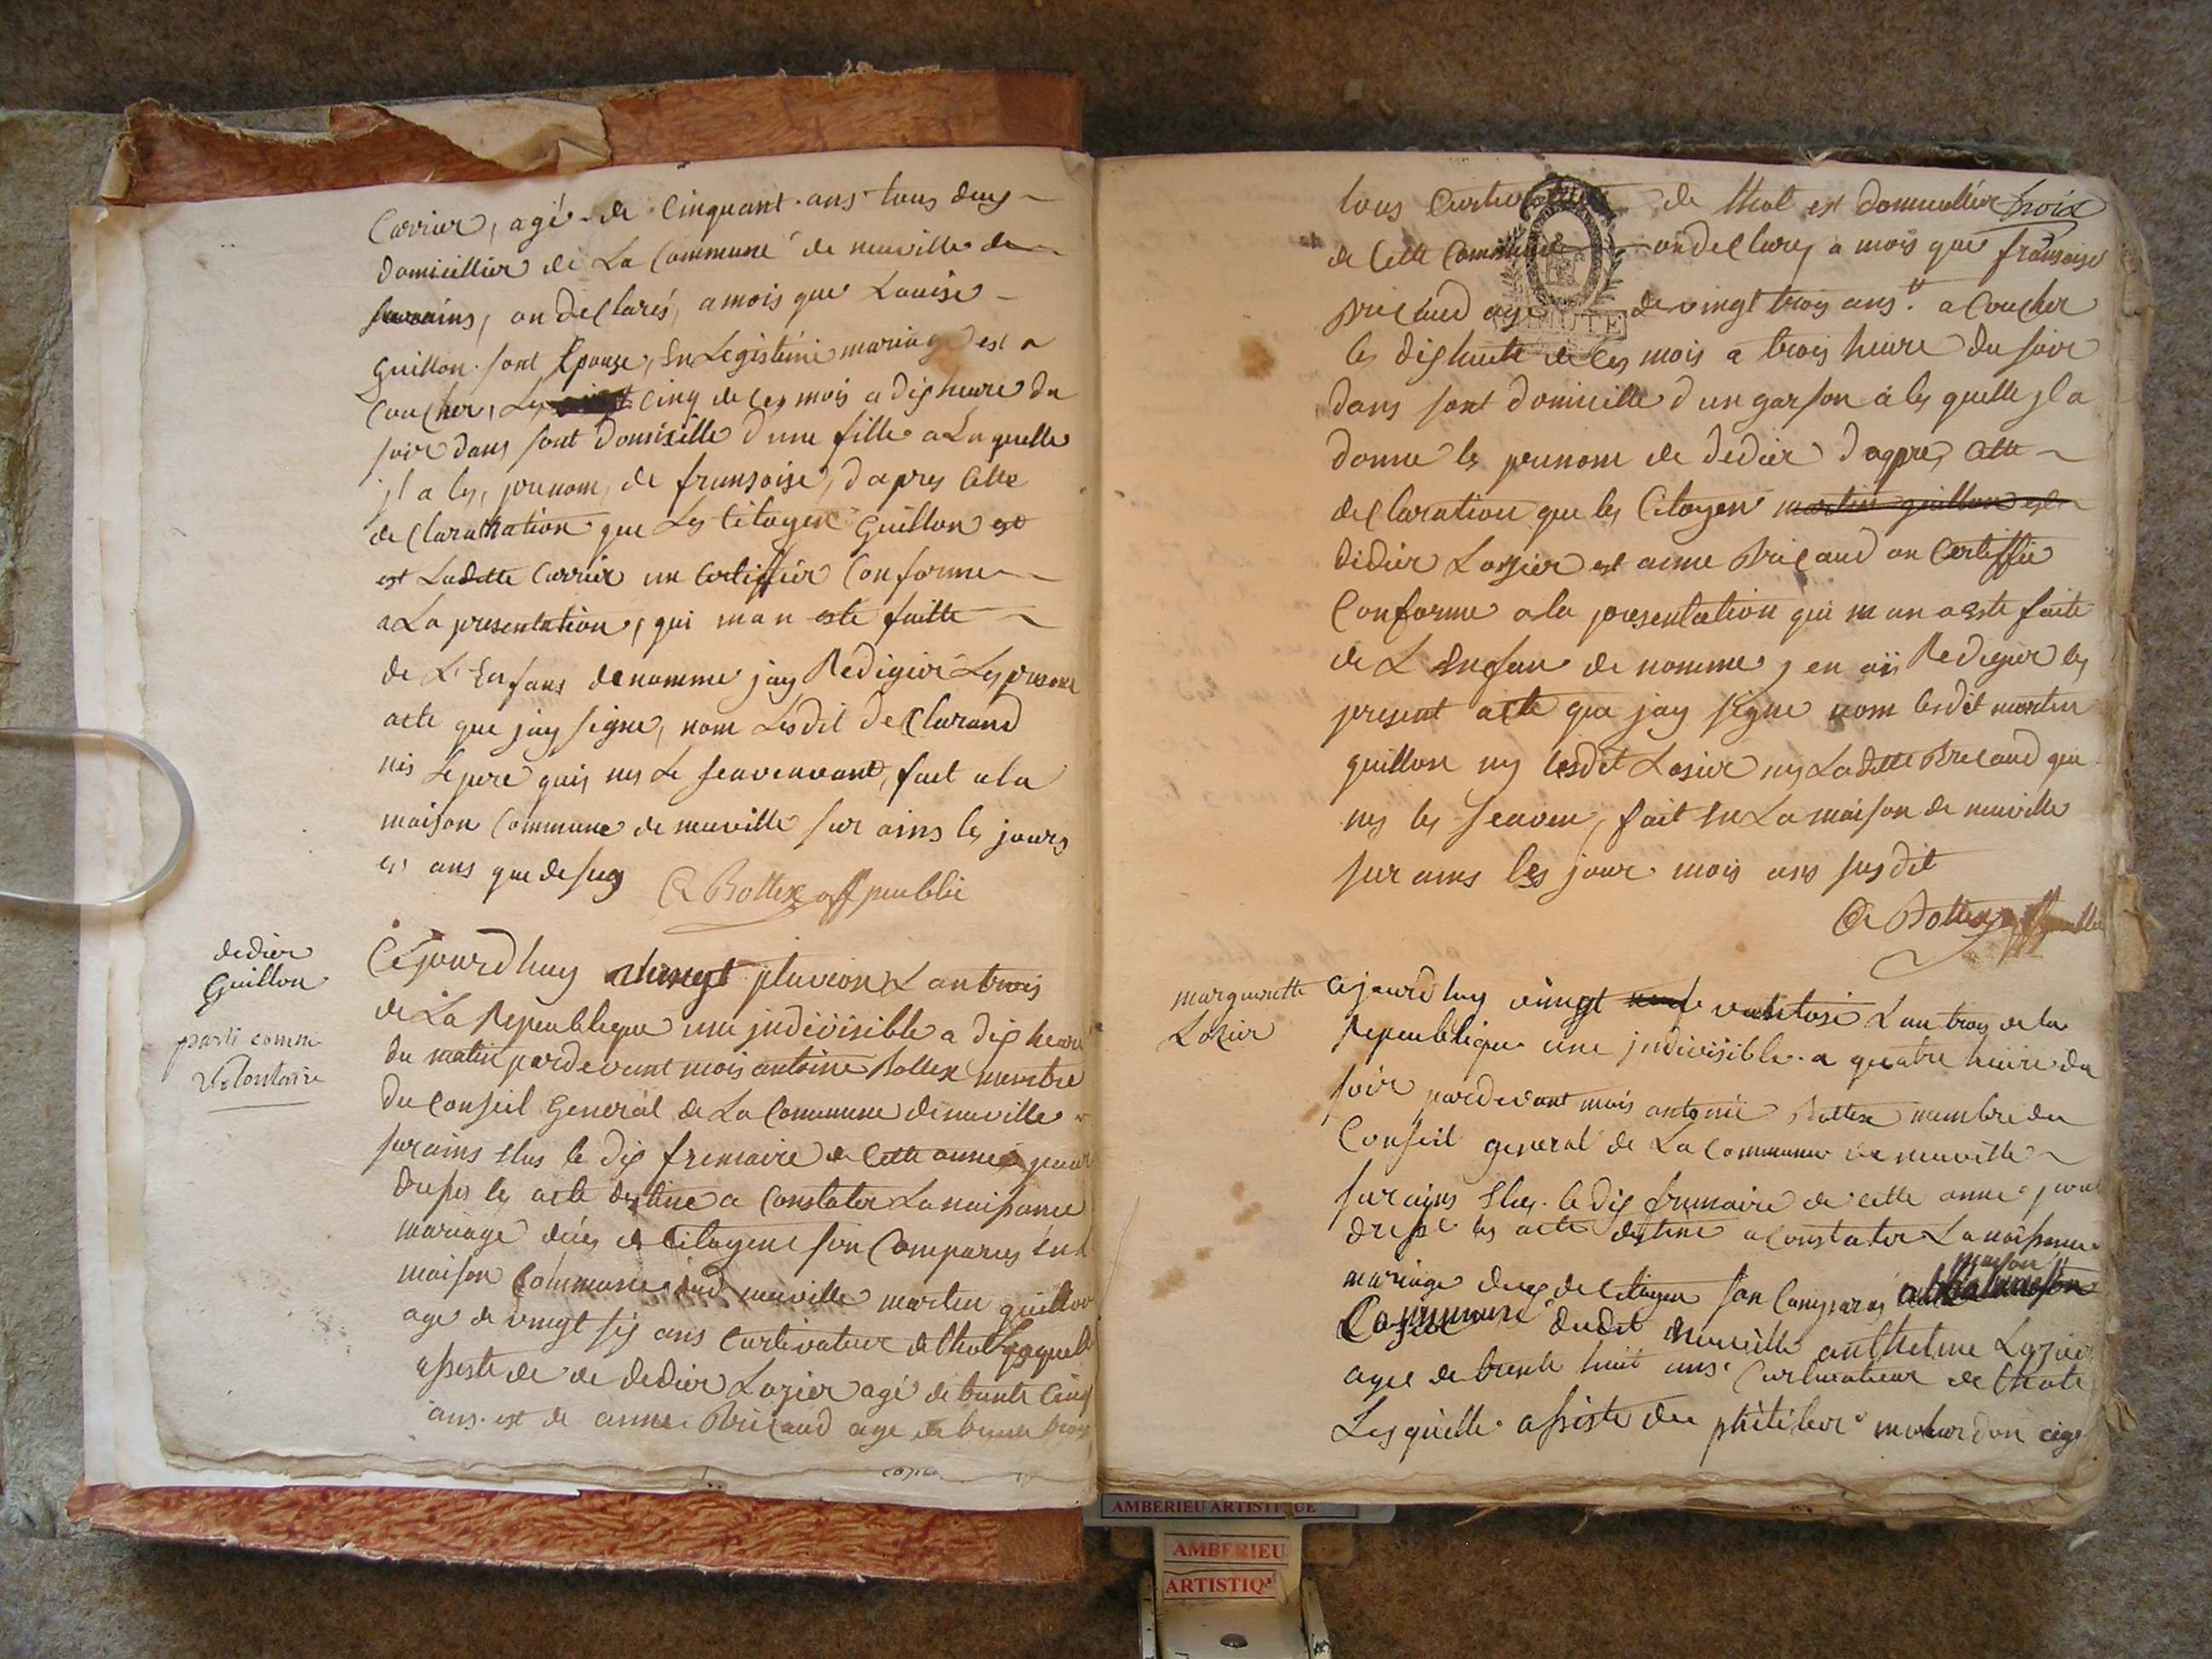 Carrier, agé de Cinquant ans tous deus
domicillier de La Commune de neuville de
on declarés, a mois que Louise
Guillon sont Epouze, En Legistime mariage est a
Coucher, Les cinq de ces mois a dix heure du
soir dans sont domicille d'une fille a Laquelle
jl a les, prenom, de fransoise, d'apres Cette
declaration que Les Citoyen Guillon est
est Laditte Carrier un Certiffier Conforme
a La presentation, qui man este faitte
de L'Enfans denomme jay Redigier Les present
acte que jay signe, nom Lesdit declarand
nis Le pere quis nes Le seavenvant, fait a la
maison Commune de neuville sur ains les jours
es ans que desus
A Bottex off publie
dedier
Guillon
parti comme
Volontaire
Cejourdhuy vingt pluviose L an trois
de La Republique une jndivisible a dix heure
du matin pardevant mois antoine Bottex membre
du Conseil General de La Commune de neuville
sur ains Elus le dix frimaire de Cette annee pour
dreser les acte destine a Constater La naissance
mariage deces de Citoyens son Comparus En La
maison Commune dud neuville martin guillon
age de vingt six ans Curtivateur de thol Lesquelle
assiste de de dedier Lozier agé de trante Cinq
ans est de anne Bricaud age de trante trois
trois
tous Curtivateur de thol est domicillier
de Cette Commune on declares a mois que fransoise
Bricaud age de vingt troy ans a Coucher
les dix huite de ces mois a trois heure du soir
dans sont domicille d'un garson a les quelle jl a
donne les prenom de dedier d'apres Cette
declaration que les Citoyen martin guillon est
didier Lozier est anne Bricaud on Certiffie
Conforme a la presentation qui m an a este faite
de L Enfan de nomme, en aii Redigier les
present acte que jay signe nom lesdit martin
guillon ny lesdit Losier ny Laditte Bricaud qui
nes les seaven, fait En La maison de neuville
sur ains les jour mois ans susdit
A Bottex off publie
marguerite
Lozier
Cejourdhuy vingt neuf vantose L an troy de la
Republique une jndivisible a quatre heure du
soir pardevant mois antonie Bottex membre du
Conseil general de La Commune de neuville
sur ains Elus le dix frimaire de cette anne pour
dresse les acte destine a Constater La naissance
mariage deces de Citoyen son Comparus maison
Commune dudit neuville anthelme Lozier
agee de trente huit ans Curtivateur de thole
Lesquelle assiste de philiber age
AMBERIEU ARTISTIQUE
AMBERIEU
ARTISTIQ